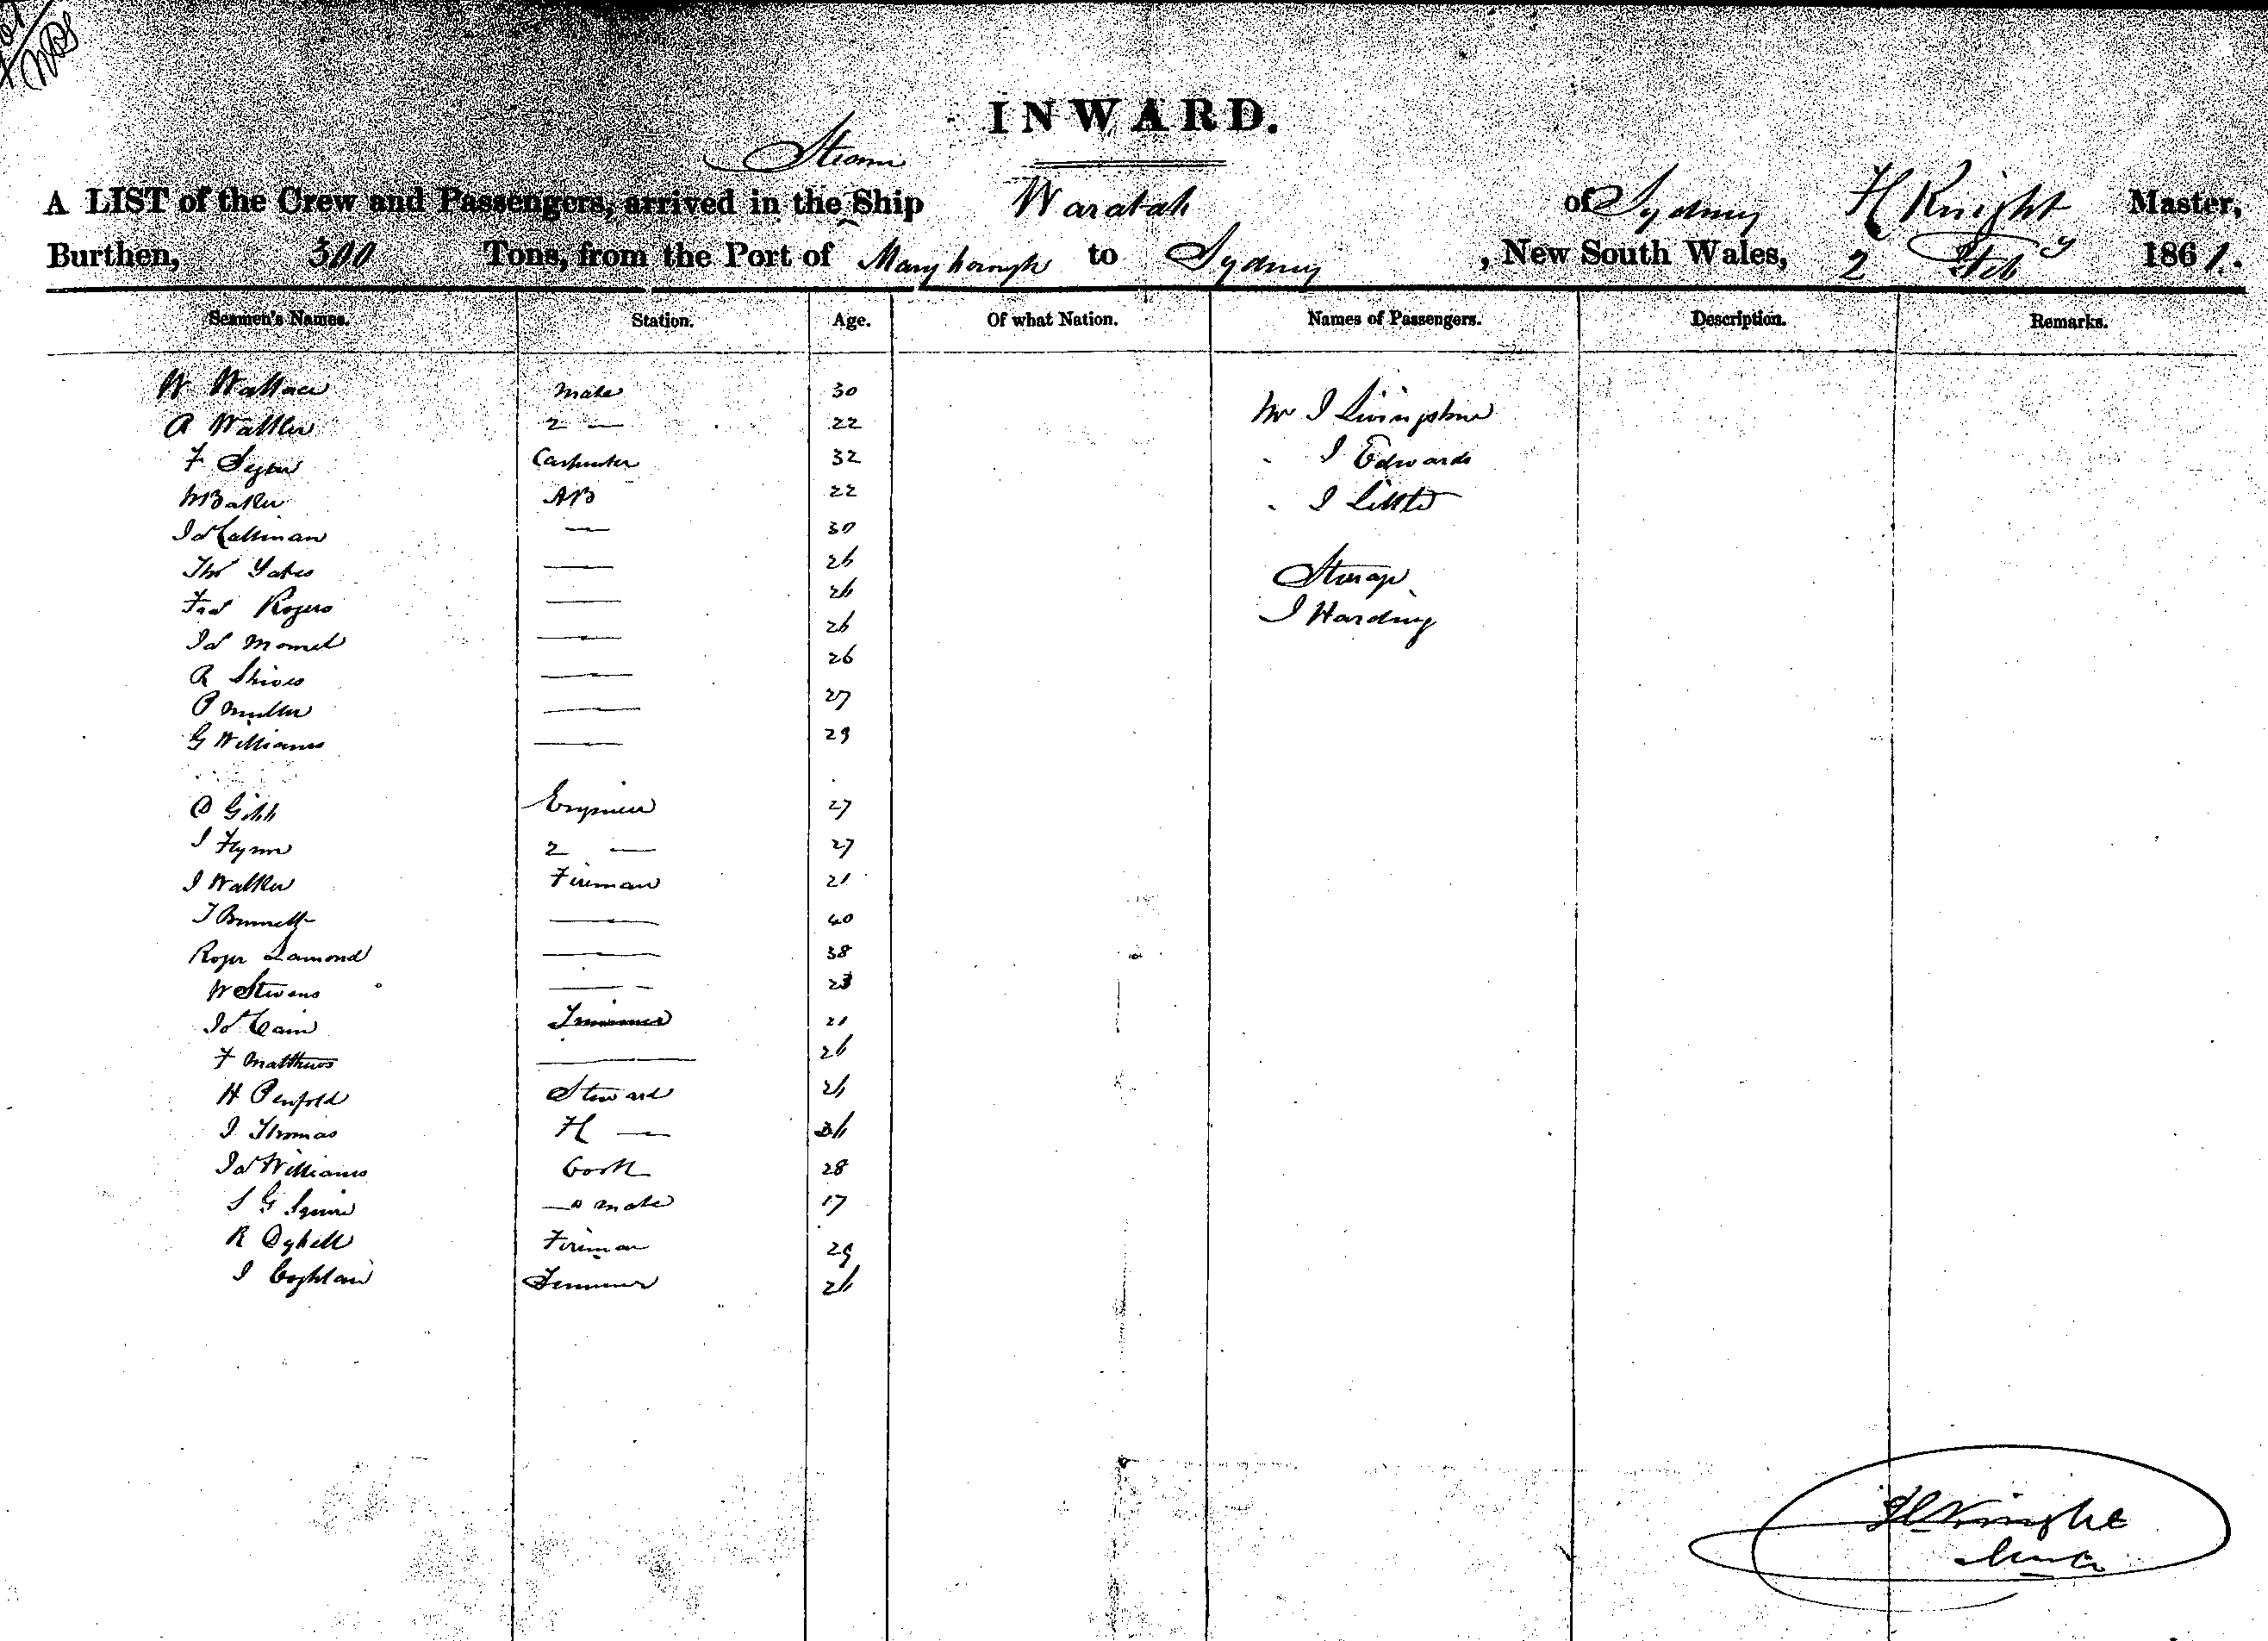 INWARD.
Steam
A LIST of the Crew and Passengers, arrived in the Ship Waratah of Sydney H Knight Master,
Burthen, 300 Tons, from the Port of Maryborough to Sydney, New South Wales, 2 Feby 1861.
Seamen's Names. Station. Age. Of what Nation. Names of Passengers. Description. Remarks.
W Wallace Mate 30
Mr J Livingstone
A Walker 2 — 22
F 32 Carpenter
" J Edwards
W Baker AB 22
" J Little
Jas Callinan — 30
Thos Yates — 26
Steerage
Fras Rogers — 26
J Harding
Jas — 26
R Shives — 26
P Muller — 27
G Williams — 29
D Gibb Engineer 27
J Flynn 2 — 27
J Walker Fireman 21
J Bennett — 40
Roger Lamond — 38
W Stevens — 23
Jas Cain Trimmer 21
F Matthews — 26
H Penfold Steward 26
J Thomas F — 36
Jas Williams Cook 28
S G Squire — s mate 17
R Fireman 29
J Coghlan Trimmer 26
H Knight
Master